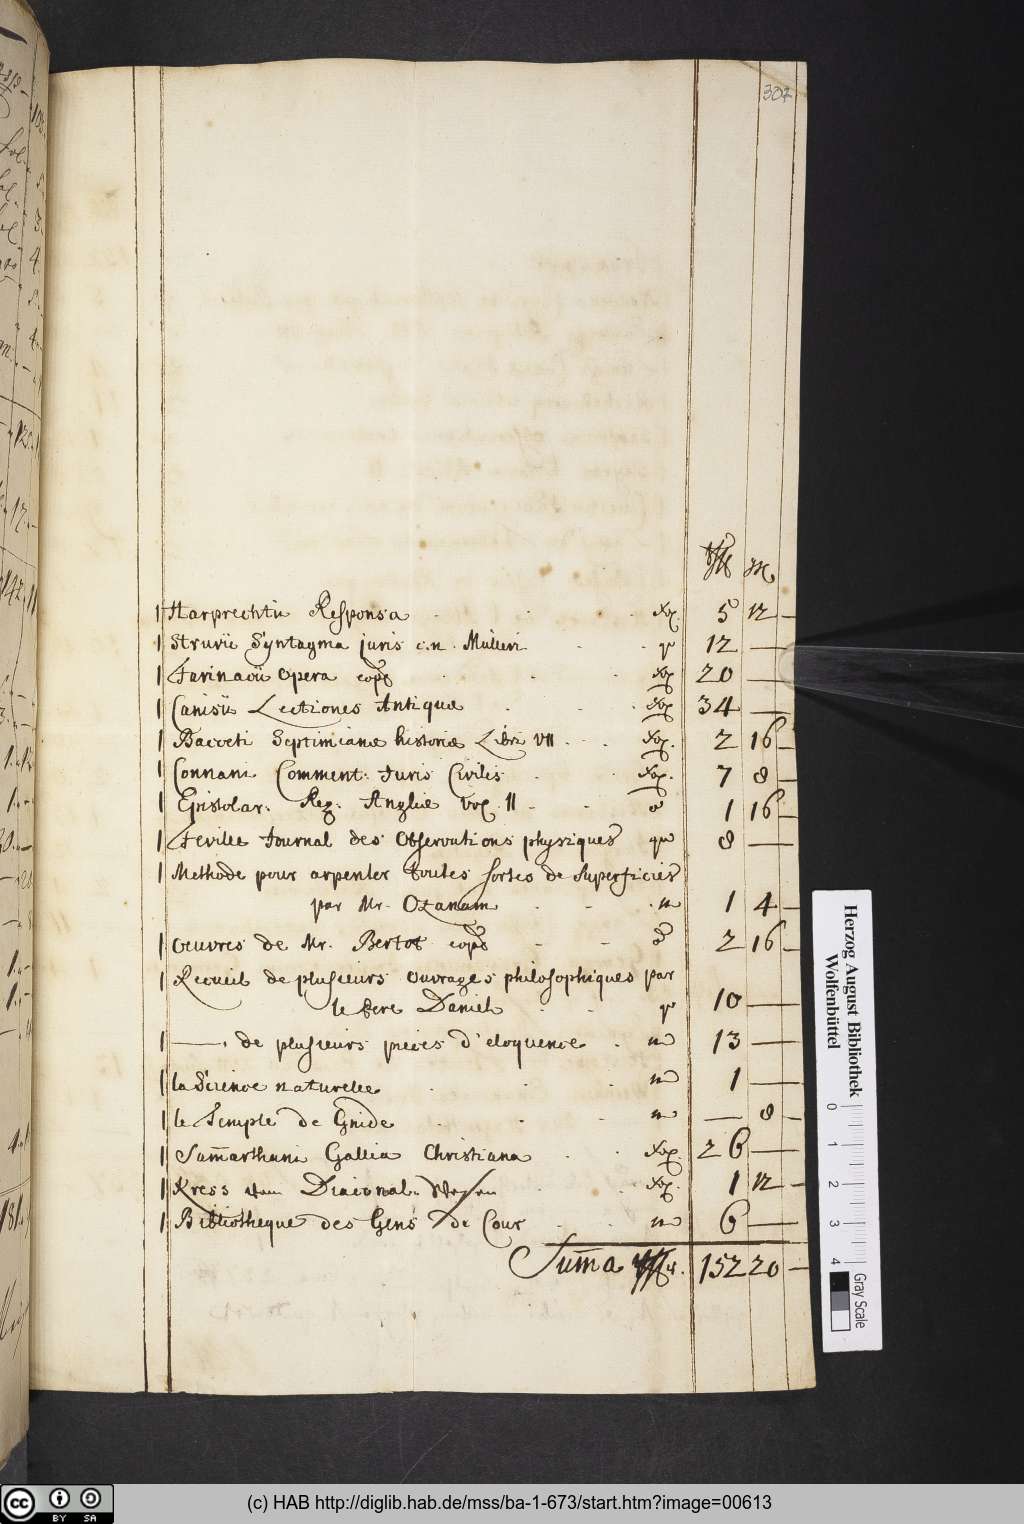 307
1 Harprechtii Responsa . . . Fol. 5 12 —
1 Struvii Syntagma juris c. n. Mülleri . . qu 12 —
1 Farinacii Opera copl . . . Fol 20 —
1 Canisii Lectiones Antiquæ . . Fol 34 —
1 Bacceti Septimianæ historiæ Libri VII . . . Fol. 2 16 —
1 Connani Comment: Juris Civilis . . Fol. 7 8 —
1 Epistolar. Reg. Angliæ vol. II - - 8 1 16 —
1 Feville Journal des Observations physiques qu 8 —
1 Methode pour arpenter toutes sortes de Superficies
par Mr. Ozanam . - . 12 1 4 —
1 Oeuvres de Mr. Bertot copl - - 8 2 16 —
1 Recueil de plusieurs ouvrages philosophiques par
le Pere Daniel . . qu 10 —
1 —. de plusieurs pieces d'eloquence . 12 13 —
1 la Science naturelle . . . 12 1 —
1 le Temple de Gnide . . . 12 — 8 —
1 Sam̄arthani Gallia Christiana . . Fol. 26 —
1 Kress vom Diaconal-Wesen . . Fol. 1 12 —
1 Bibliotheque des Gens de Cour . . 12 6 —
Sum̄a 152 20 —
Herzog August Bibliothek
Wolfenbüttel
0 1 2 3 4
Gray Scale
cc BY SA
(c) HAB http://diglib.hab.de/mss/ba-1-673/start.htm?image=00613